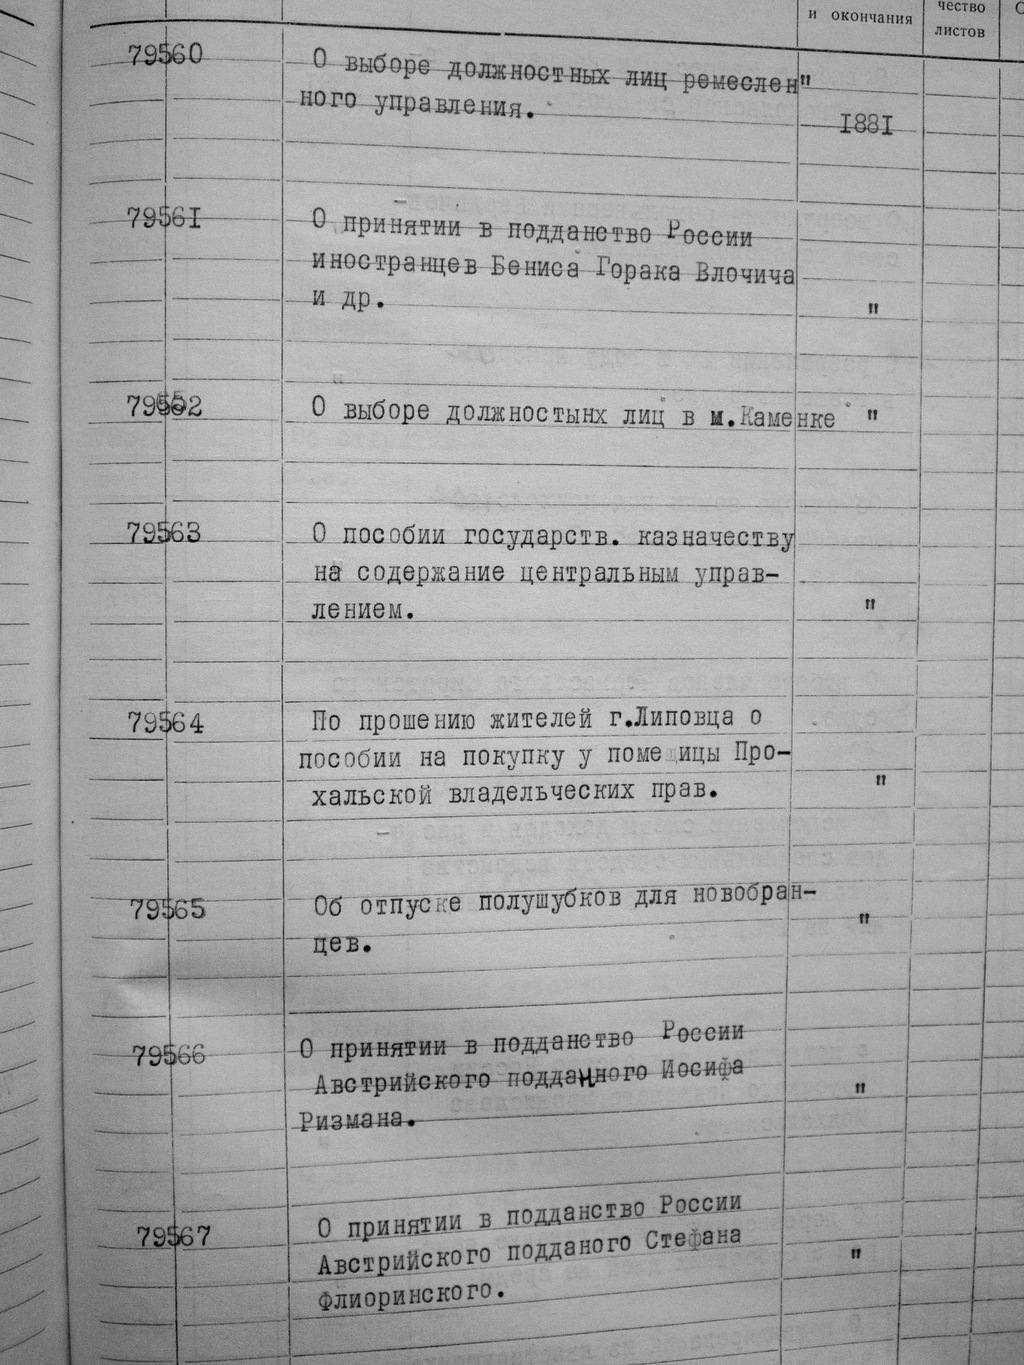 и окончания
чество
листов
79560
О выборе должностных лиц ремеслен"
ного управления.
I88I
7956I
О принятии в подданство России
иностранцев Бениса Горака Влочича
и др.
"
79562
О выборе должностынх лиц в м.Каменке "
79563
О пособии государств. казначеству
на содержание центральным управ-
лением.
"
79564
По прошению жителей г.Липовца о
пособии на покупку у помещицы Про-
хальской владельческих прав.
"
79565
Об отпуске полушубков для новобран-
цев.
"
79566
О принятии в подданство России
Австрийского подданного Иосифа
Ризмана.
"
79567
О принятии в подданство России
Австрийского подданого Стефана
Флиоринского.
"